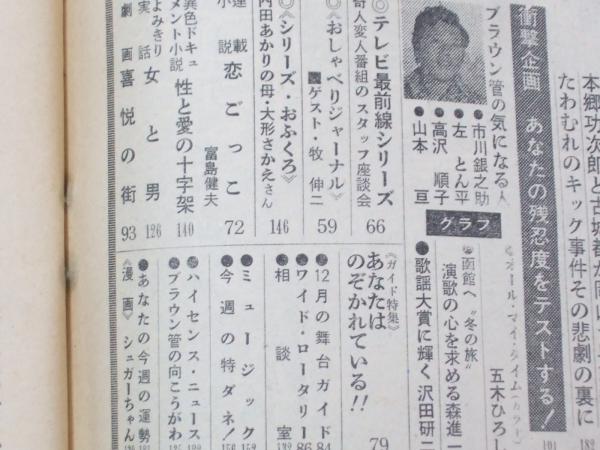 本郷功次郎と古城都が問い
たわむれのキック事件その悲劇の裏に
衝撃企画 あなたの残忍度をテストする! 101
ブラウン管の気になる人
●市川銀之助
●左 とん平
●高沢 順子
●山本 亘
◎テレビ最前線シリーズ
奇人変人番組のスタッフ座談会 66
◎《おしゃべりジャーナル》
ゲスト・牧 伸二 59
◎《シリーズ・おふくろ》
内田あかりの母・大形さかえさん 146
連載小説 恋ごっこ 富島健夫 72
異色ドキュメント小説 性と愛の十字架 140
よみきり実話 女と男 126
劇画 喜悦の街 93
グラフ
オール・マイ・タイム
五木ひろし
函館へ“冬の旅”
演歌の心を求める森進一
歌謡大賞に輝く沢田研二
《ガイド特集》
あなたはのぞかれている!! 79
●12月の舞台ガイド 84
●ワイド・ロータリー 86
相談室
●ミュージック
●今週の特ダネ!
●ハイセンス・ニュース
●ブラウン管の向こうがわ
●あなたの今週の運勢
《漫画》シュガーちゃん